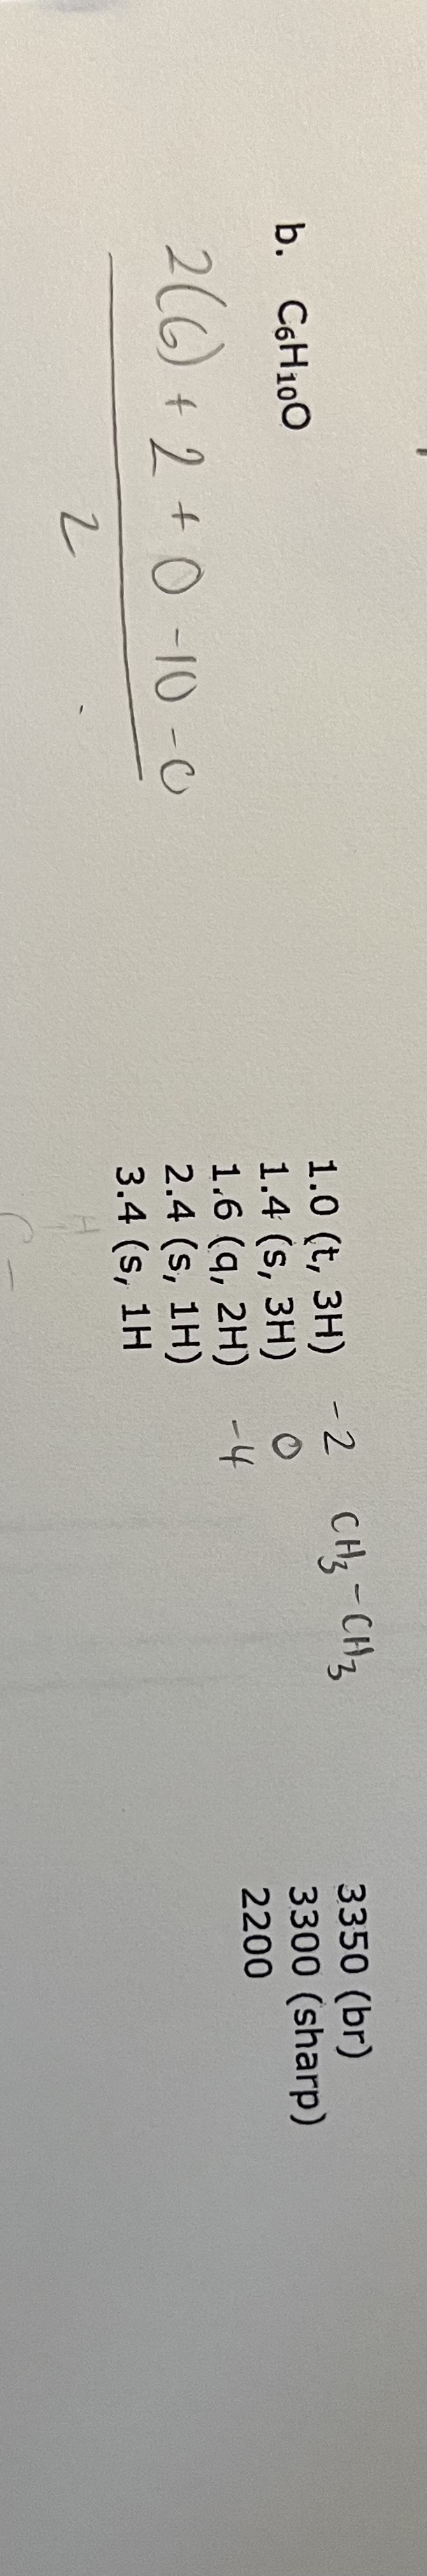 b. C₆H₁₀O
2(6) + 2 + 0 -10 -0
2
1.0 (t, 3H) -2 CH₃-CH₃
1.4 (s, 3H) 0
1.6 (q, 2H) -4
2.4 (s, 1H)
3.4 (s, 1H
H
3350 (br)
3300 (sharp)
2200